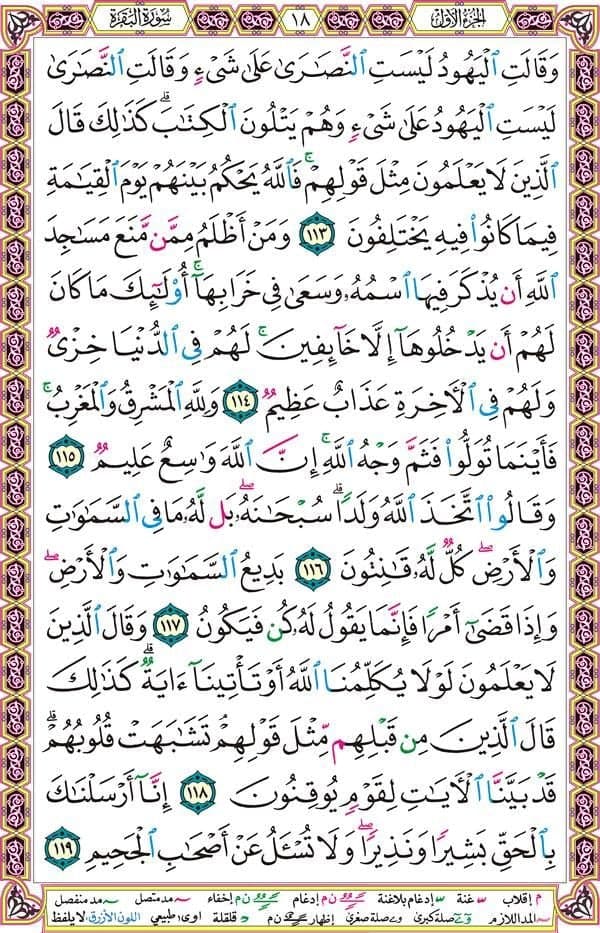 الجزء الأول ١٨ سورة البقرة
وَقَالَتِ ٱلْيَهُودُ لَيْسَتِ ٱلنَّصَٰرَىٰ عَلَىٰ شَىْءٍ وَقَالَتِ ٱلنَّصَٰرَىٰ
لَيْسَتِ ٱلْيَهُودُ عَلَىٰ شَىْءٍ وَهُمْ يَتْلُونَ ٱلْكِتَٰبَ ۗ كَذَٰلِكَ قَالَ
ٱلَّذِينَ لَا يَعْلَمُونَ مِثْلَ قَوْلِهِمْ ۚ فَٱللَّهُ يَحْكُمُ بَيْنَهُمْ يَوْمَ ٱلْقِيَٰمَةِ
فِيمَا كَانُوا۟ فِيهِ يَخْتَلِفُونَ ١١٣ وَمَنْ أَظْلَمُ مِمَّن مَّنَعَ مَسَٰجِدَ
ٱللَّهِ أَن يُذْكَرَ فِيهَا ٱسْمُهُۥ وَسَعَىٰ فِى خَرَابِهَآ ۚ أُو۟لَٰٓئِكَ مَا كَانَ
لَهُمْ أَن يَدْخُلُوهَآ إِلَّا خَآئِفِينَ ۚ لَهُمْ فِى ٱلدُّنْيَا خِزْىٌ
وَلَهُمْ فِى ٱلْءَاخِرَةِ عَذَابٌ عَظِيمٌ ١١٤ وَلِلَّهِ ٱلْمَشْرِقُ وَٱلْمَغْرِبُ ۚ
فَأَيْنَمَا تُوَلُّوا۟ فَثَمَّ وَجْهُ ٱللَّهِ ۚ إِنَّ ٱللَّهَ وَٰسِعٌ عَلِيمٌ ١١٥
وَقَالُوا۟ ٱتَّخَذَ ٱللَّهُ وَلَدًا ۗ سُبْحَٰنَهُۥ ۖ بَل لَّهُۥ مَا فِى ٱلسَّمَٰوَٰتِ
وَٱلْأَرْضِ ۖ كُلٌّ لَّهُۥ قَٰنِتُونَ ١١٦ بَدِيعُ ٱلسَّمَٰوَٰتِ وَٱلْأَرْضِ ۖ
وَإِذَا قَضَىٰٓ أَمْرًا فَإِنَّمَا يَقُولُ لَهُۥ كُن فَيَكُونُ ١١٧ وَقَالَ ٱلَّذِينَ
لَا يَعْلَمُونَ لَوْلَا يُكَلِّمُنَا ٱللَّهُ أَوْ تَأْتِينَآ ءَايَةٌ ۗ كَذَٰلِكَ
قَالَ ٱلَّذِينَ مِن قَبْلِهِم مِّثْلَ قَوْلِهِمْ ۘ تَشَٰبَهَتْ قُلُوبُهُمْ ۗ
قَدْ بَيَّنَّا ٱلْءَايَٰتِ لِقَوْمٍ يُوقِنُونَ ١١٨ إِنَّآ أَرْسَلْنَٰكَ
بِٱلْحَقِّ بَشِيرًا وَنَذِيرًا ۖ وَلَا تُسْـَٔلُ عَنْ أَصْحَٰبِ ٱلْجَحِيمِ ١١٩
م إقلاب غنة إدغام بلاغنة ن م إدغام ن م إخفاء مد متصل مد منفصل
المد اللازم صلة كبرى صلة صغرى إظهار ن م قلقلة اوى طبيعي اللون الأزرق لا يلفظ